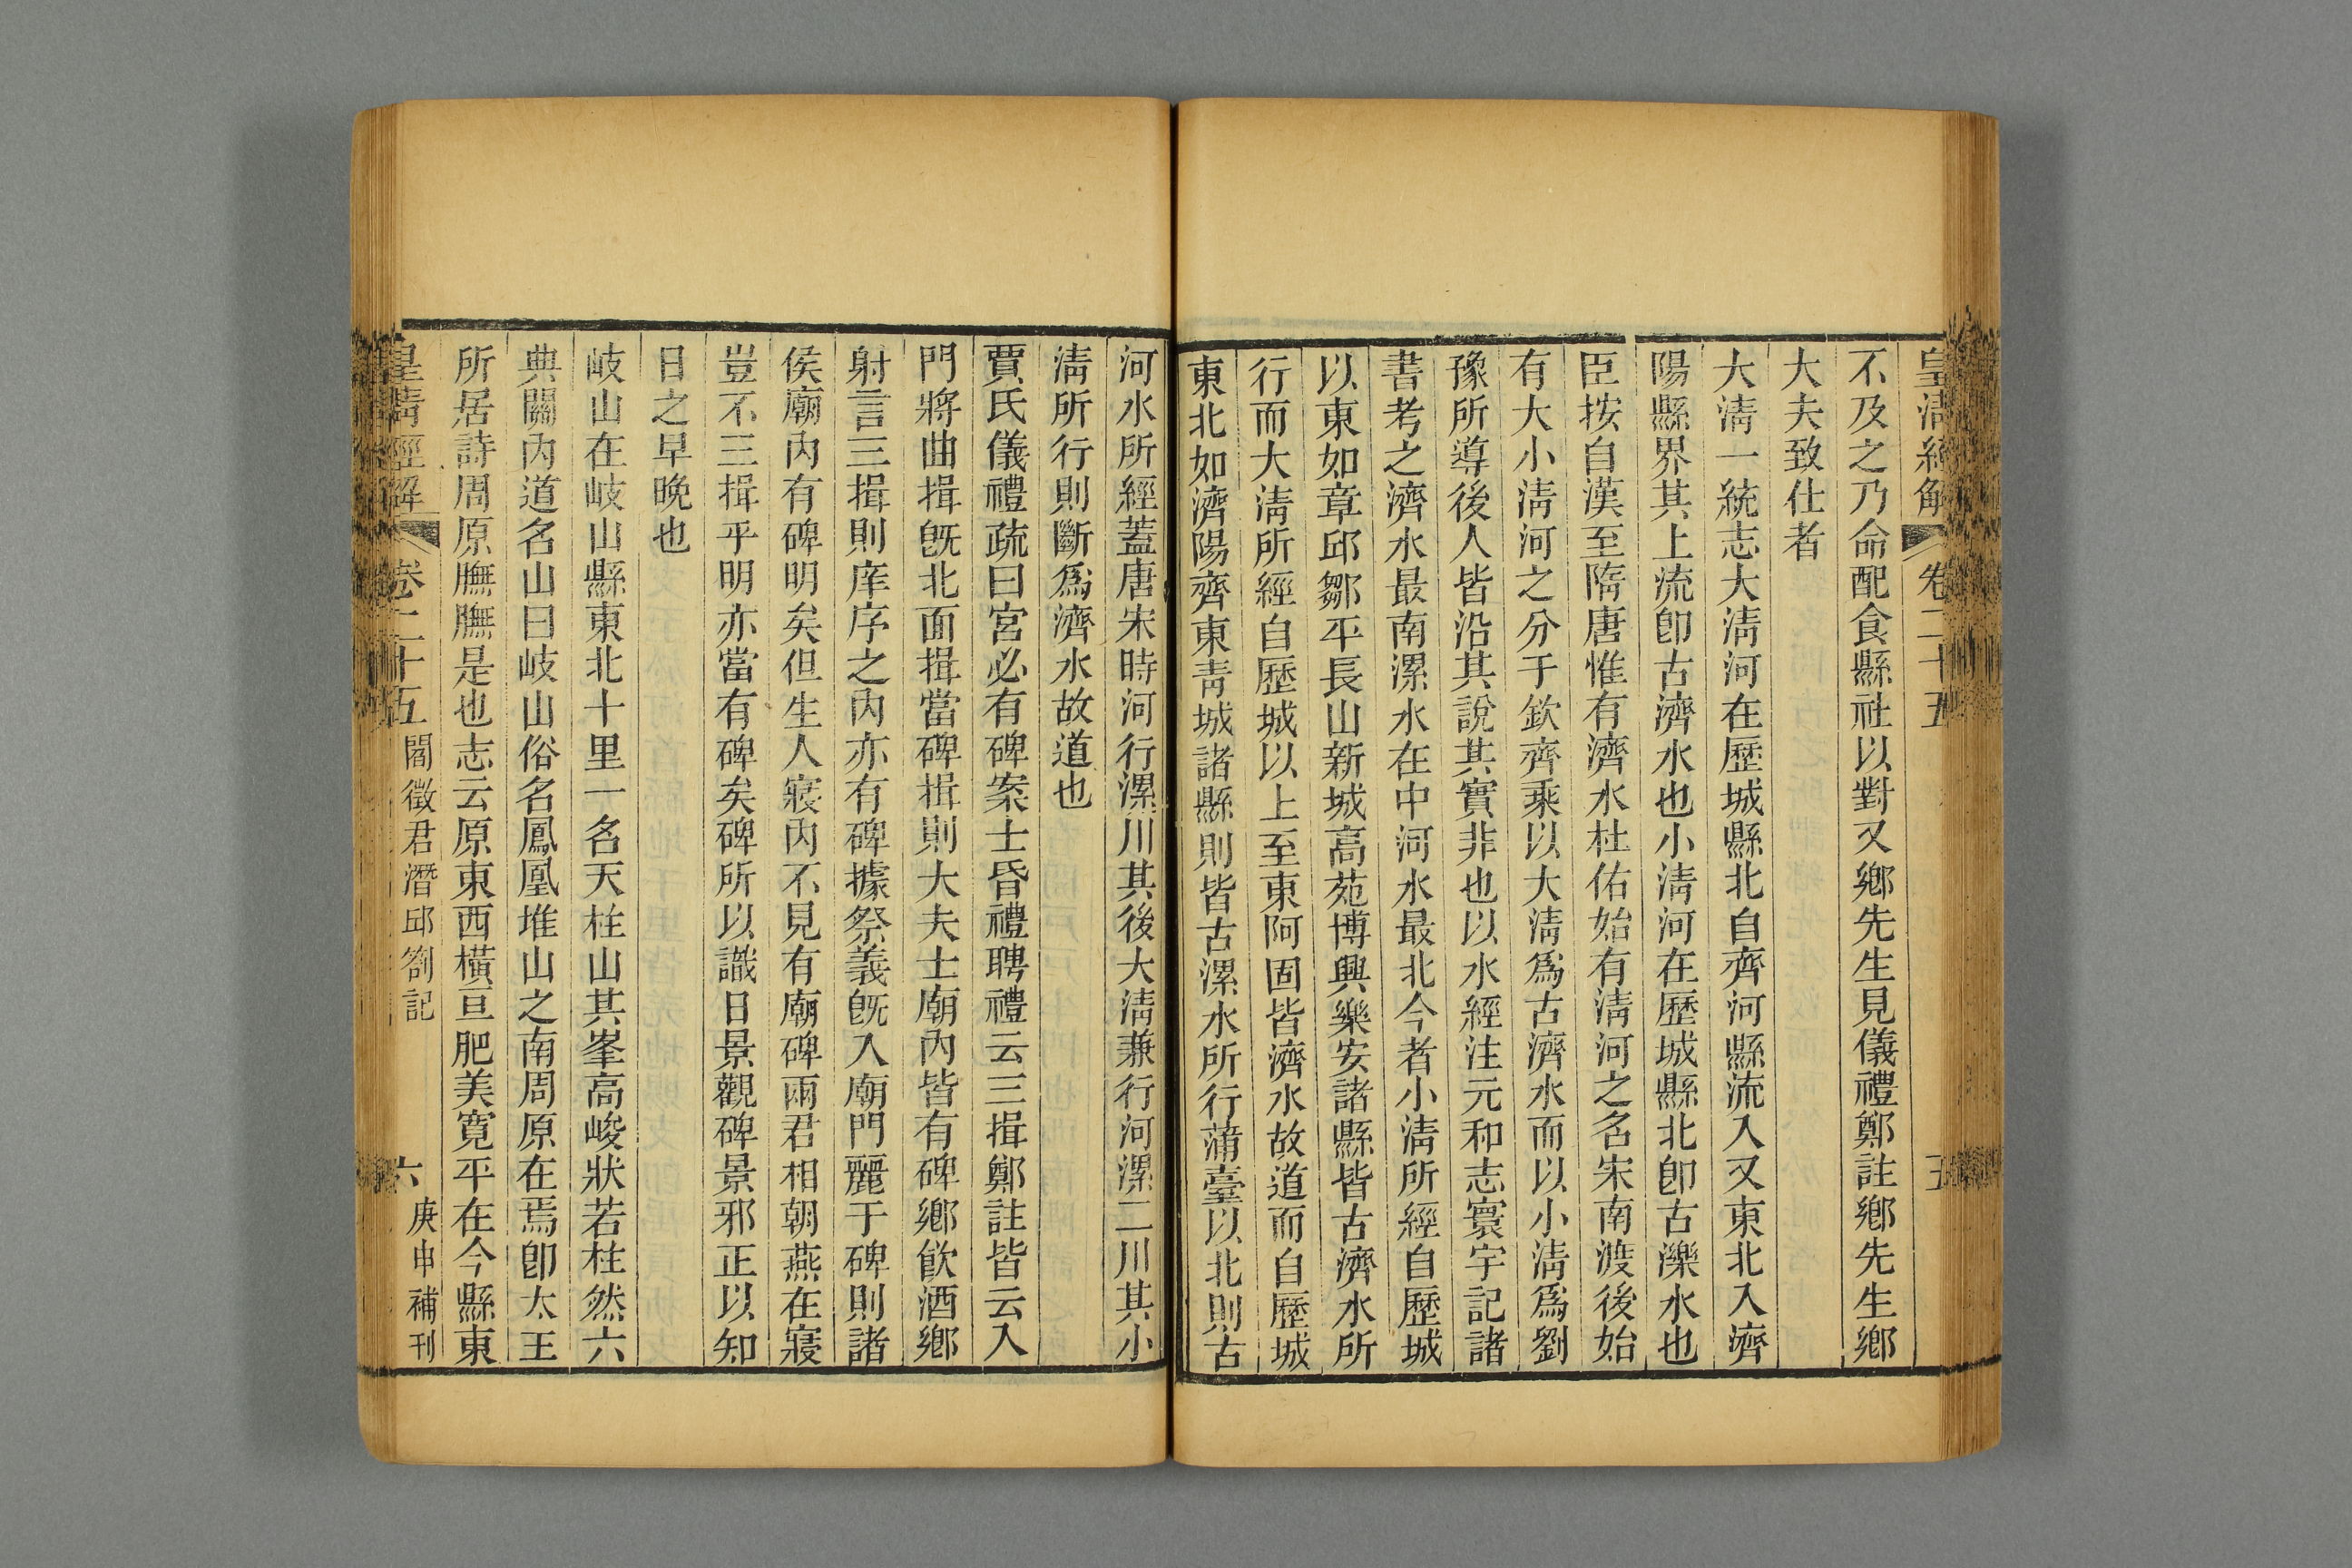 皇淸經解 卷二十五 五
不及之乃命配食縣社以對又鄉先生見儀禮鄭註鄉先生鄉
大夫致仕者
大淸一統志大淸河在歷城縣北自齊河縣流入又東北入濟
陽縣界其上流卽古濟水也小淸河在歷城縣北卽古濼水也
臣按自漢至隋唐惟有濟水杜佑始有淸河之名宋南渡後始
有大小淸河之分于欽齊乘以大淸爲古濟水而以小淸爲劉
豫所導後人皆沿其說其實非也以水經注元和志寰宇記諸
書考之濟水最南漯水在中河水最北今者小淸所經自歷城
以東如章邱鄒平長山新城高苑博興樂安諸縣皆古濟水所
行而大淸所經自歷城以上至東阿固皆濟水故道而自歷城
東北如濟陽齊東靑城諸縣則皆古漯水所行蒲臺以北則古
河水所經蓋唐宋時河行漯川其後大淸兼行河漯二川其小
淸所行則斷爲濟水故道也
賈氏儀禮疏曰宮必有碑案士昏禮聘禮云三揖鄭註皆云入
門將曲揖旣北面揖當碑揖則大夫士廟內皆有碑鄉飮酒鄉
射言三揖則庠序之內亦有碑據祭義旣入廟門麗于碑則諸
侯廟內有碑明矣但生人寢內不見有廟碑兩君相朝燕在寢
豈不三揖乎明亦當有碑矣碑所以識日景觀碑景邪正以知
日之早晚也
岐山在岐山縣東北十里一名天柱山其峯高峻狀若柱然六
典關內道名山曰岐山俗名鳳凰堆山之南周原在焉卽太王
所居詩周原膴膴是也志云原東西橫亘肥美寬平在今縣東
皇淸經解 卷二十五 閻徵君潛邱劄記 六 庚申補刊